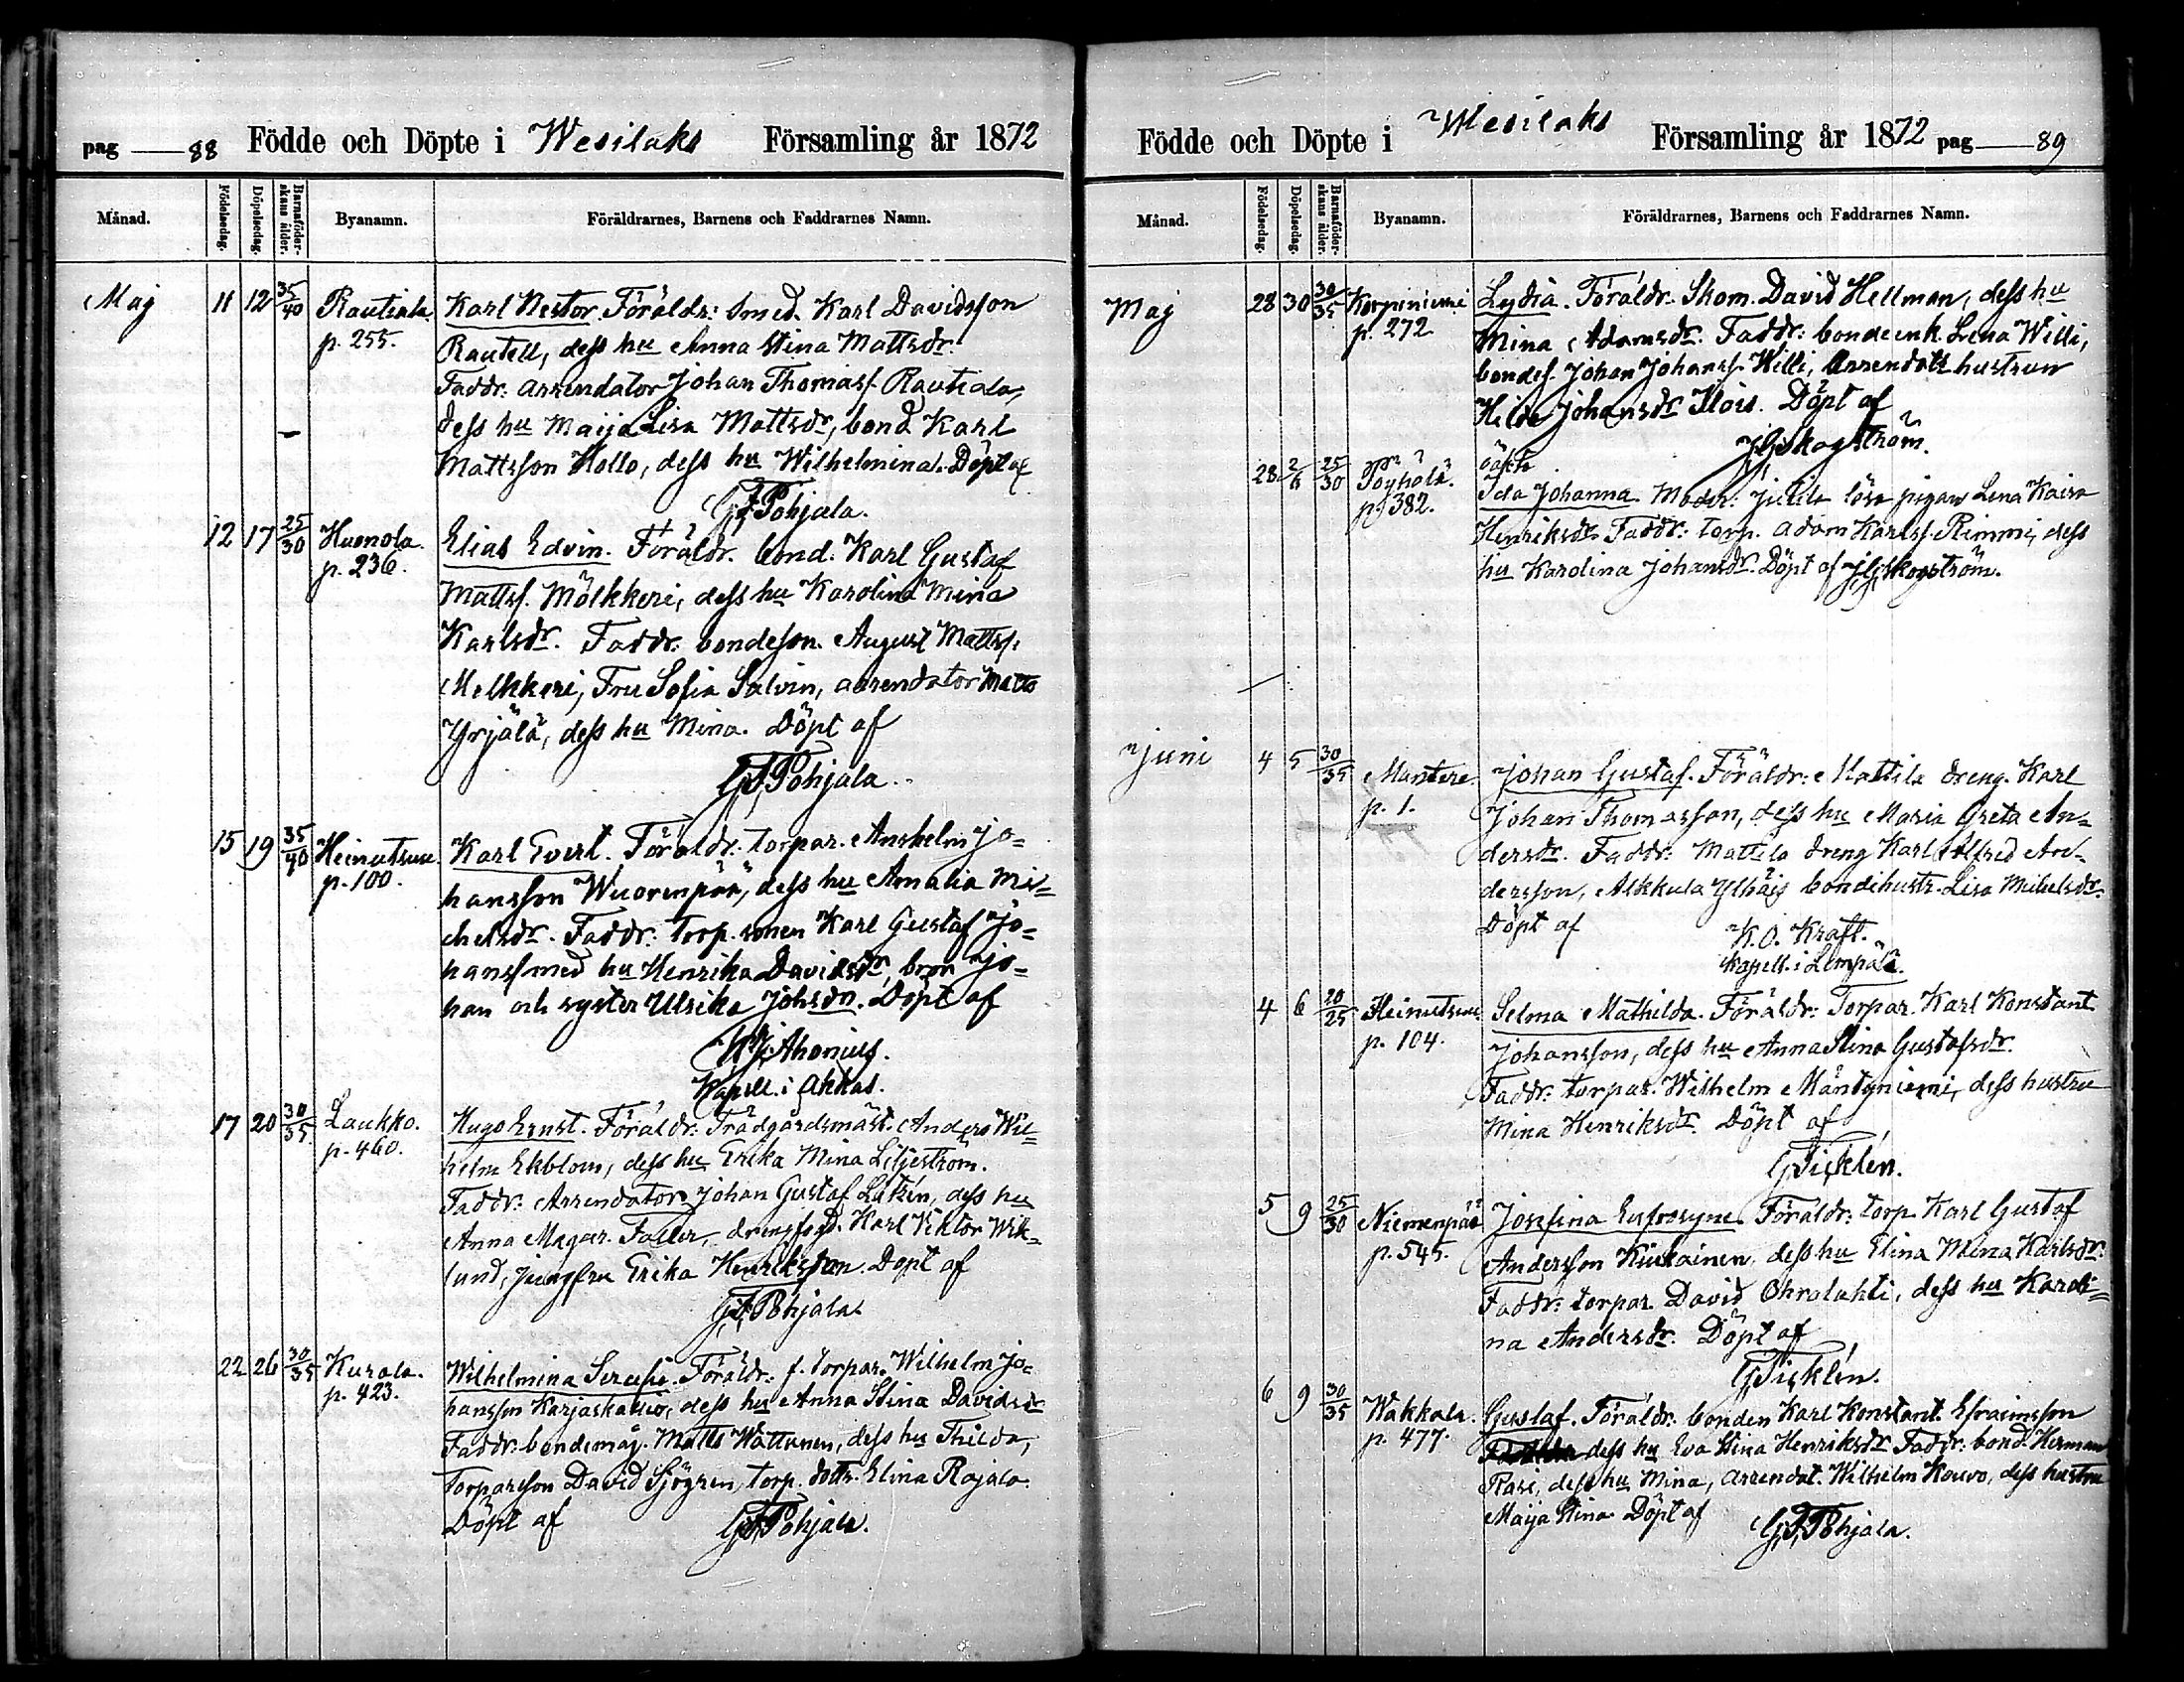 pag 88 Födde och Döpte i Wesilaks Församling år 1872
Månad. Födelsedag. Döpelsedag. Barnaföderskans ålder. Byanamn. Föräldrarnes, Barnens och Faddrarnes Namn.
Maj 11 12 35/40 Rautiala. Karl Nestor. Föräldr: Smed. Karl Davidsson
p. 255. Rautell, dess hu Anna Stina Mattsdr.
Faddr: arrendator Johan Thomass. Rautiala,
dess hu Maija Lisa Mattsdr, bond Karl
Mattsson Hollo, dess hu Wilhelmina. Döpt af
G.F. Pohjala.
12 17 25/30 Huonola. Elias Edvin. Föräldr. bond. Karl Gustaf
p. 236. Mattss. Mölkkeri, dess hu Karolina Mina
Karlsdr. Faddr: bondeson. August Mattss.
Melkkeri, Fru Sofia Salvin, arrendator Matts
Yrjälä, dess hu Mina. Döpt af
G.F. Pohjala.
15 19 35/40 Heinutsuu. Karl Evert. Föräldr: torpar. Anshelm Jo=
p. 100. hansson Wuorenpää, dess hu Amalia Mi=
chelsdr. Faddr: torp. sonen Karl Gustaf Jo=
hanss med hu Henrika Davidsdr, bror Jo=
han och syster Ulrika Johsdr. Döpt af
Ahonius.
Kapell. i Akkas.
17 20 30/35 Laukko. Hugo Ernst. Föräldr: Trädgårdsmäst. Anders Wil=
p. 460. helm Ekblom, dess hu Erika Mina Liljeström.
Faddr: Arrendator Johan Gustaf dess hu
Anna Magar. drengfogd. Karl Viktor Wik=
lund, jungfru Erika Henriksson. Döpt af
G.F. Pohjala.
22 26 30/35 Kurala. Wilhelmina Serafia. Föräldr: f. torpar. Wilhelm Jo=
p. 423. hansson dess hu Anna Stina Davidsdr
Faddr: bondemåg. Matts Wattunen, dess hu Thilda,
torparson David Sjögren, torp. dottr. Elina Rajala.
Döpt af G.F. Pohjala.
Födde och Döpte i Wesilaks Församling år 1872 pag 89
Månad. Födelsedag. Döpelsedag. Barnaföderskans ålder. Byanamn. Föräldrarnes, Barnens och Faddrarnes Namn.
Maj 28 30 30/35 Korpiniemi Lydia. Föräldr. Skom. David Hellman, dess hu
p. 272. Mina Adamsdr. Faddr: bondeenk. Lena Willi,
bondes. Johan Johanss. Willi, Arrendatr hustrun
Hilda Johansdr Ilois. Döpt af
Skogström.
oäkta
28 2/6 25/30 Pöyhölä. Ida Johanna. Modr: lösa pigan Lena Kaisa
p. 382. Henriksdr. Faddr: torp. Adam Karlss. Rimmi, dess
hu Karolina Johansdr. Döpt af Skogström.
Juni 4 5 30/35 Mantere. Johan Gustaf. Föräldr: Mattila dreng. Karl
p. 1. Johan Thomasson, dess hu Maria Greta An=
dersdr. Faddr: Mattila dreng Karl Alfred An=
dersson, Alkkula Ylhäis bondehustr. Lisa Michelsdr.
Döpt af K.O. Kraft.
Kapell. i Lempälä.
4 6 20/25 Heinutsuu Selma Mathilda. Föräldr: Torpar. Karl Konstant
p. 104. Johansson, dess hu Anna Stina Gustafsdr.
Faddr: torpar. Wilhelm Mäntyniemi, dess hustru
Mina Henriksdr. Döpt af
G. Ticklén.
5 9 25/30 Niemenpää Josefina Eufrosyne. Föräldr: torp. Karl Gustaf
p. 545. Andersson Kiukainen, dess hu Elina Mina Karlsdr.
Faddr: torpar. David Ohralahti, dess hu Karoli=
na Andersdr. Döpt af
G. Ticklén.
6 9 30/35 Wakkala. Gustaf. Föräldr: bonden Karl Konstant. Efraimsson
p. 477. dess hu Eva Stina Henriksdr Faddr: bond. Herman
Rasi, dess hu Mina, arrendat. Wilhelm Kouvo, dess hustru
Maija Stina Döpt af G.F. Pohjala.